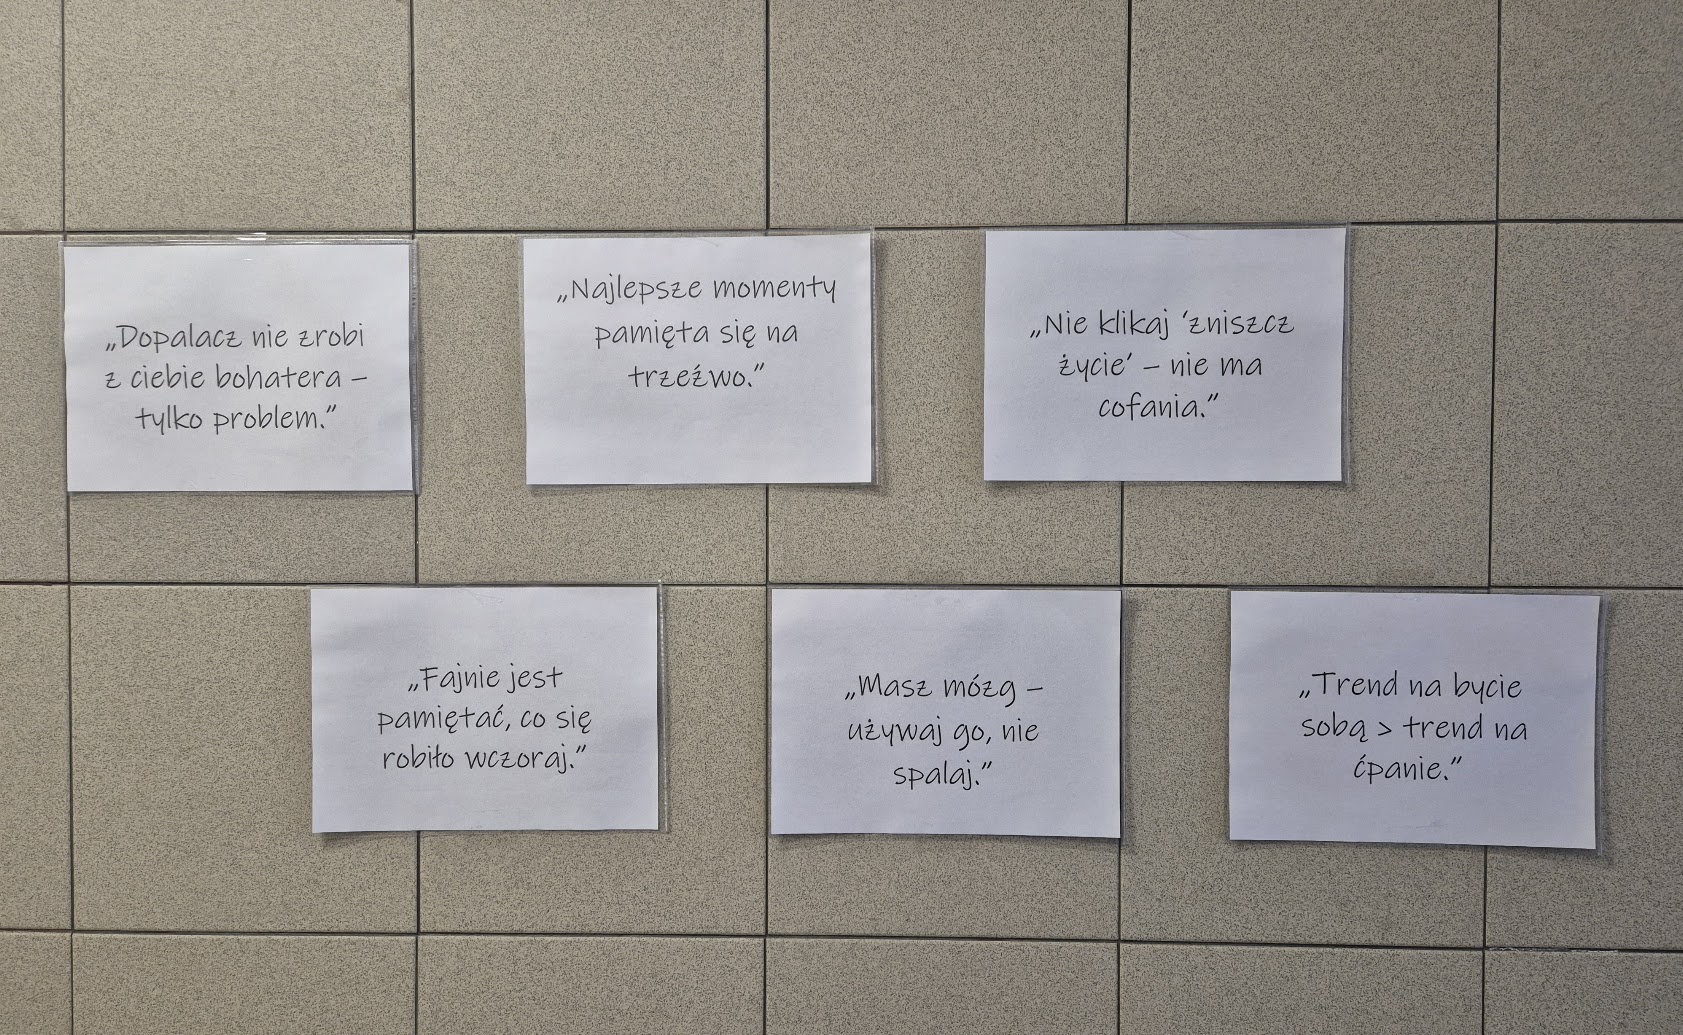 „Dopalacz nie zrobi
z ciebie bohatera –
tylko problem.”
„Najlepsze momenty
pamięta się na
trzeźwo.”
„Nie klikaj ‘zniszcz
życie’ – nie ma
cofania.”
„Fajnie jest
pamiętać, co się
robiło wczoraj.”
„Masz mózg –
używaj go, nie
spalaj.”
„Trend na bycie
sobą > trend na
ćpanie.”